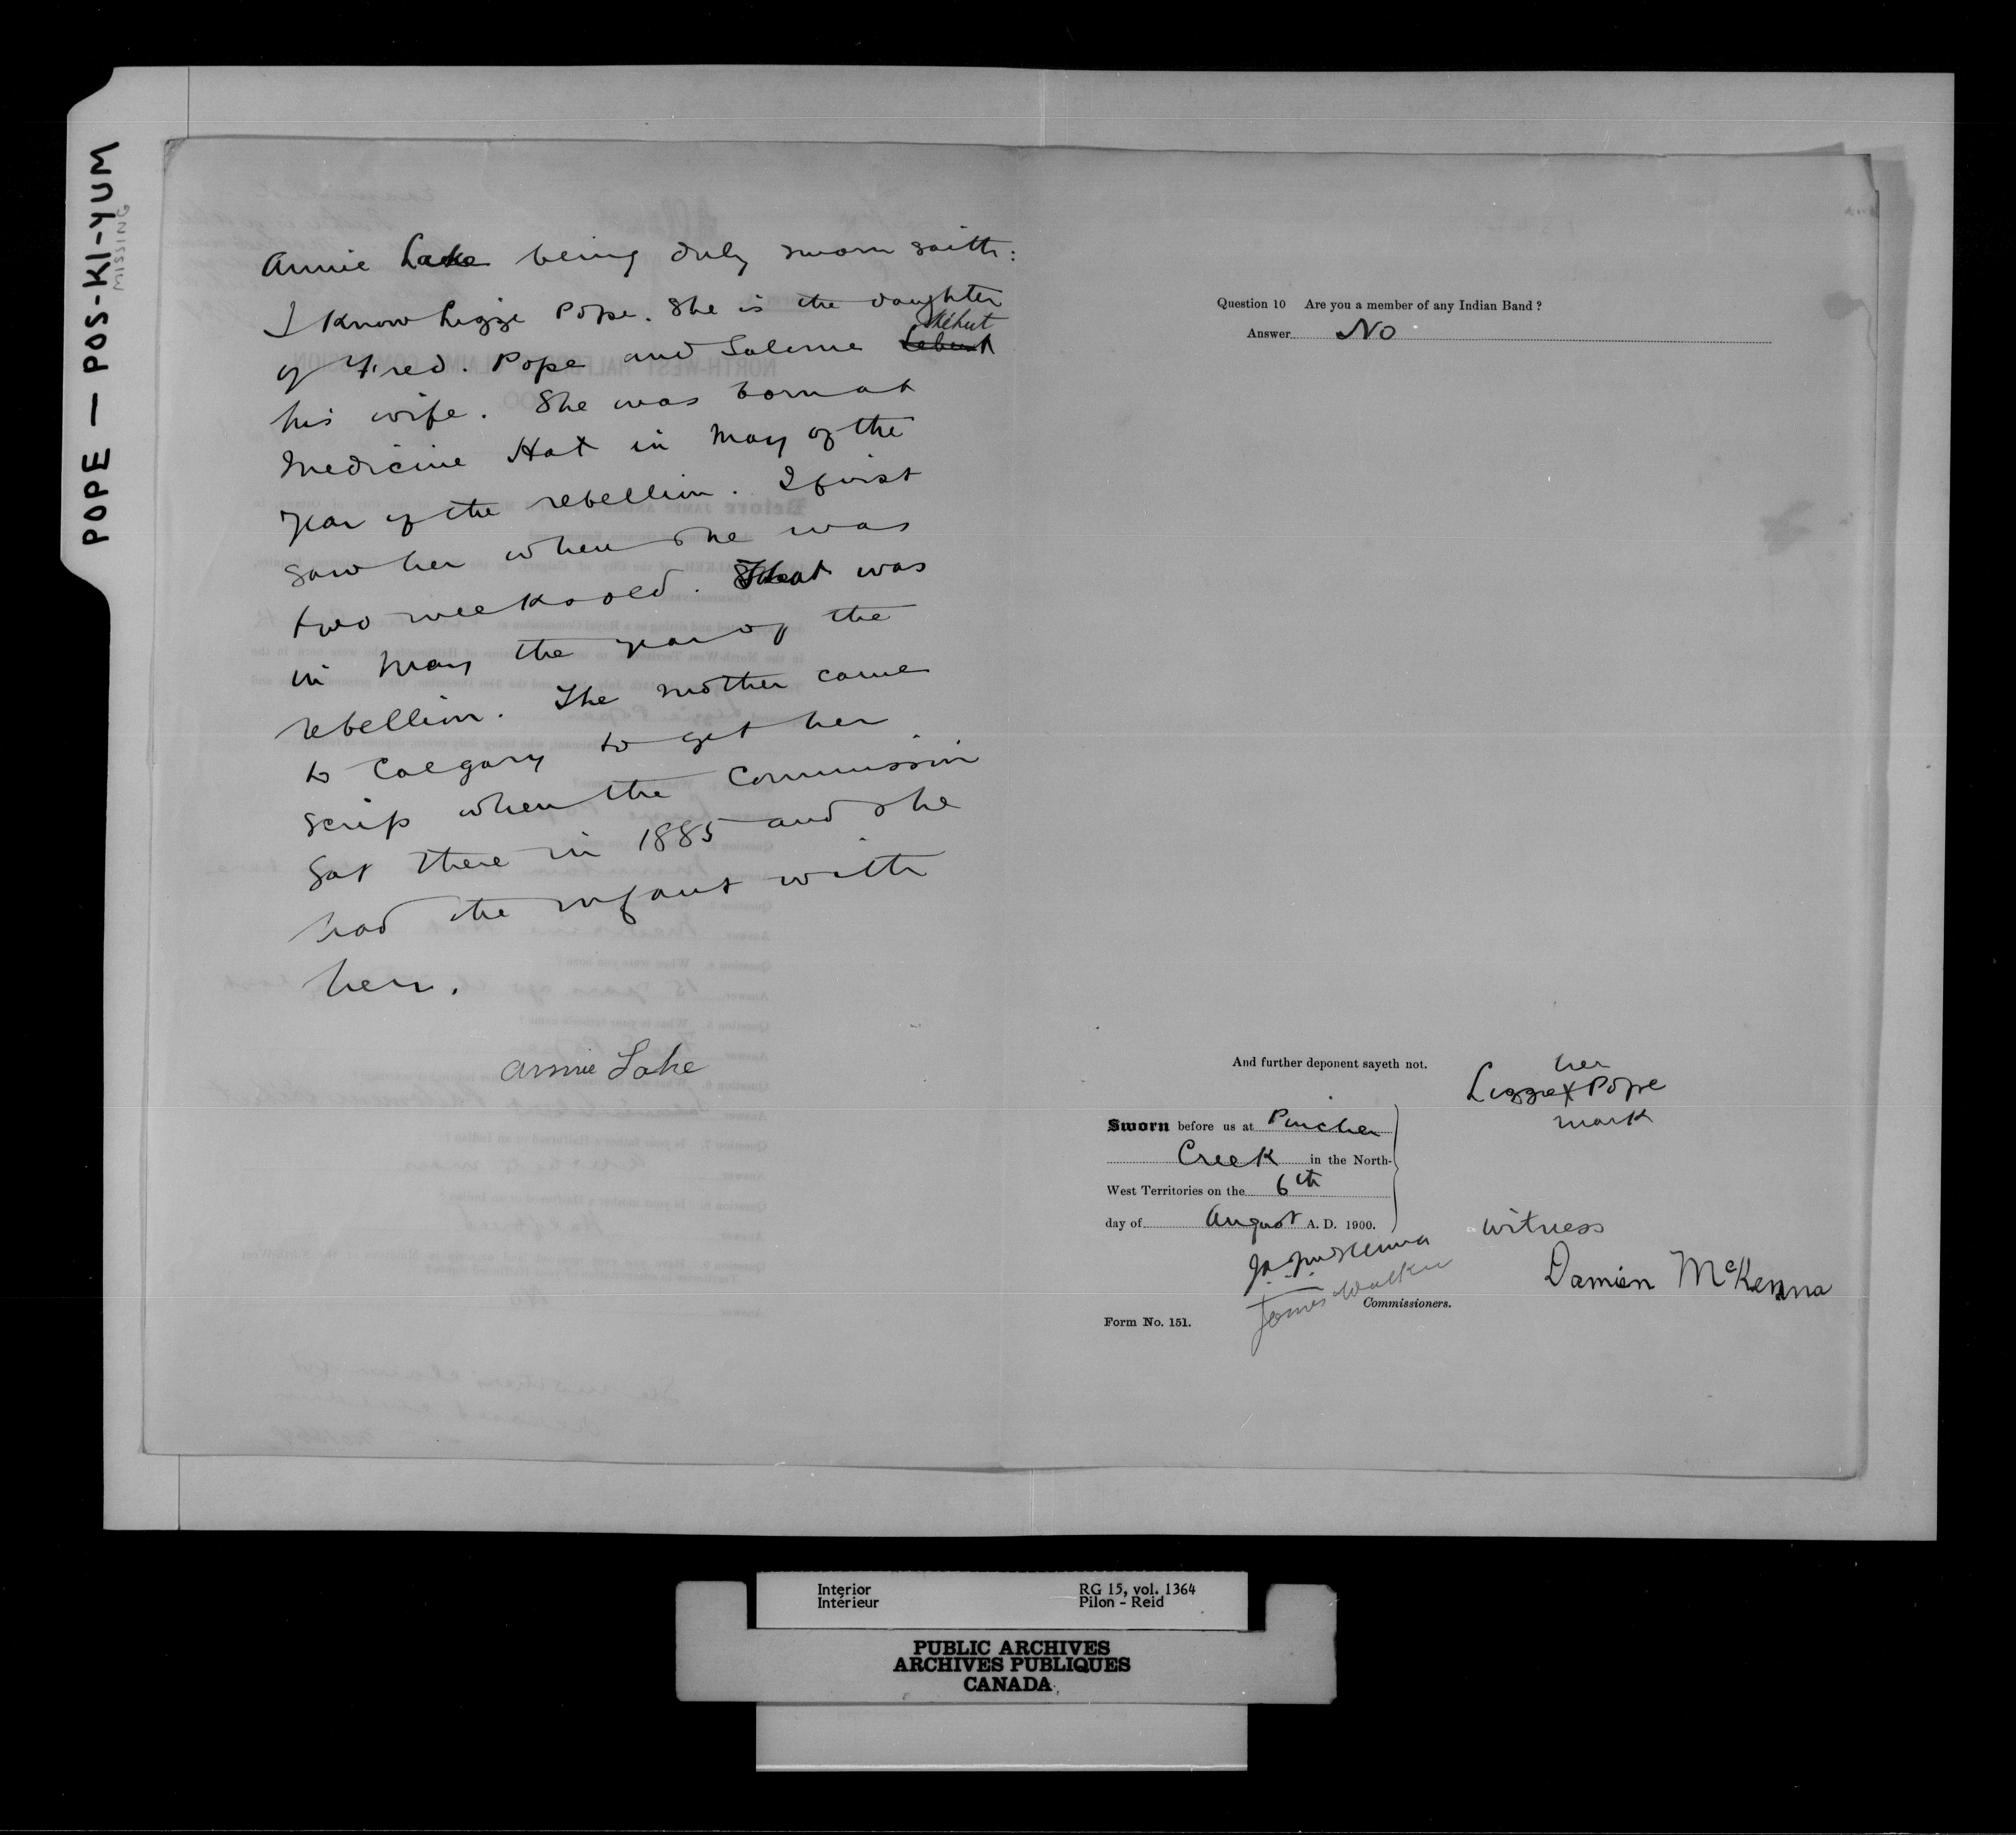 POPE — POS-KI-YUM
MISSING
Annie Lake being duly sworn saith:
I know Lizzie Pope. She is the daughter
of Fred. Pope and Salome
his wife. She was born at
Medicine Hat in May of the
year of the rebellion. I first
saw her when she was
two weeks old. That was
in May the year of the
rebellion. The mother came
to Calgary to get her
scrip when the Commission
sat there in 1885 and she
had the infant with
her.
Annie Lake
Question 10 Are you a member of any Indian Band ?
Answer No
And further deponent sayeth not.
her
Lizzie X Pope
mark
Sworn before us at Pincher
Creek in the North-
West Territories on the 6th
day of August A. D. 1900.
witness
J.A. McKenna
Damien McKenna
James Walker
Commissioners.
Form No. 151.
Interior
Intérieur
RG 15, vol. 1364
Pilon - Reid
PUBLIC ARCHIVES
ARCHIVES PUBLIQUES
CANADA